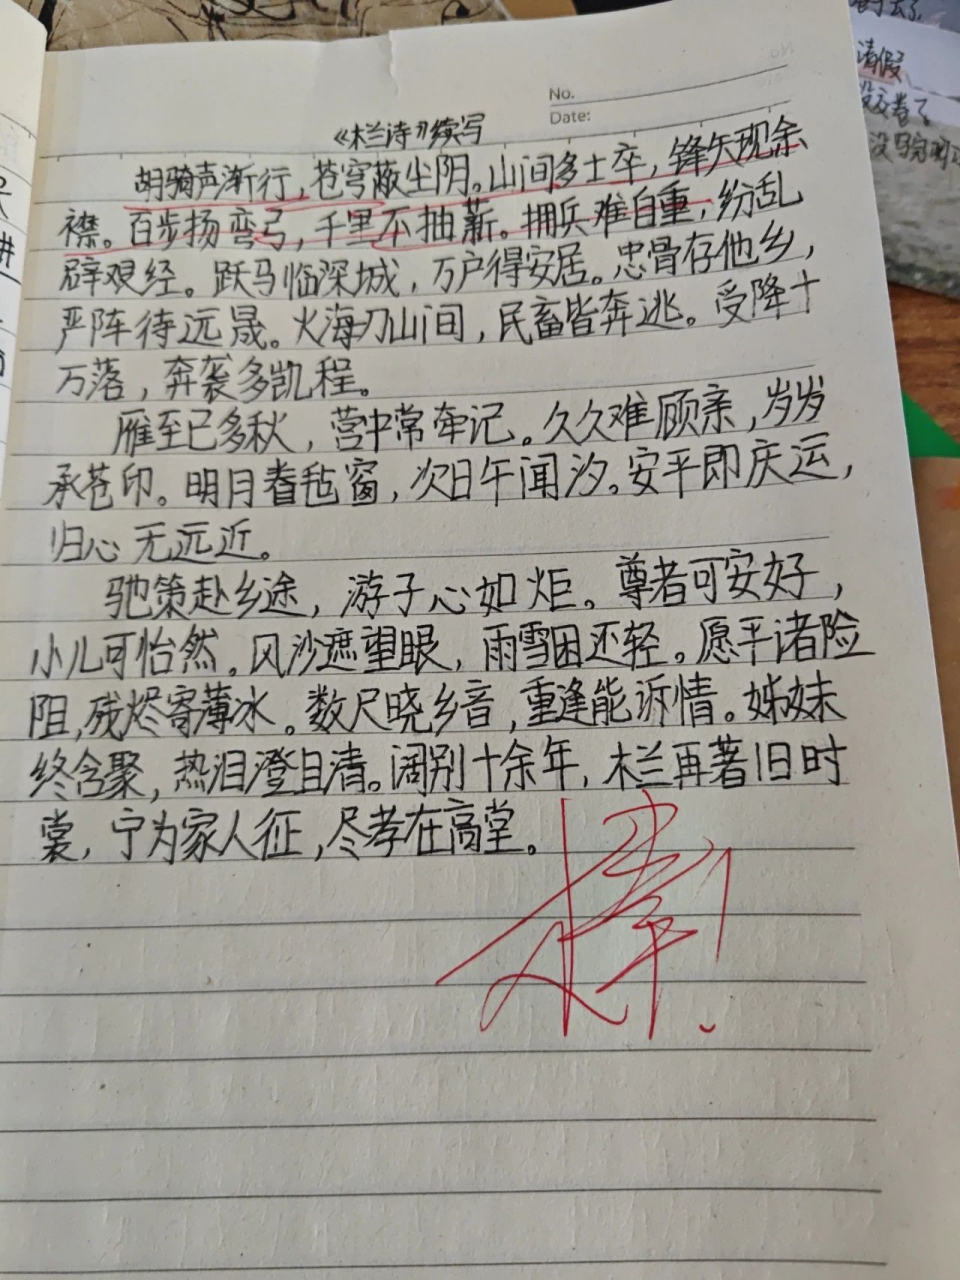 No.
Date:
《木兰诗》续写
胡骑声渐行，苍穹蔽尘阴。山间多士卒，锋矢现余
襟。百步扬弯弓，千里不抽薪。拥兵难自重，纷乱
辟艰经。跃马临深城，万户得安居。忠骨存他乡，
严阵待远晟。火海刀山间，民畜皆奔逃。受降十
万落，奔袭多凯程。
雁至已多秋，营中常牵记。久久难顾亲，岁岁
承苍印。明月看毡窗，次日午闻汐。安平即庆运，
归心无远近。
驰策赴乡途，游子心如炬。尊者可安好，
小儿可怡然。风沙遮望眼，雨雪困还轻。愿平诸险
阻，残烬寄薄冰。数尺晓乡音，重逢能诉情。姊妹
终含聚，热泪澄目清。阔别十余年，木兰再著旧时
裳，宁为家人征，尽孝在高堂。
棒！
请假